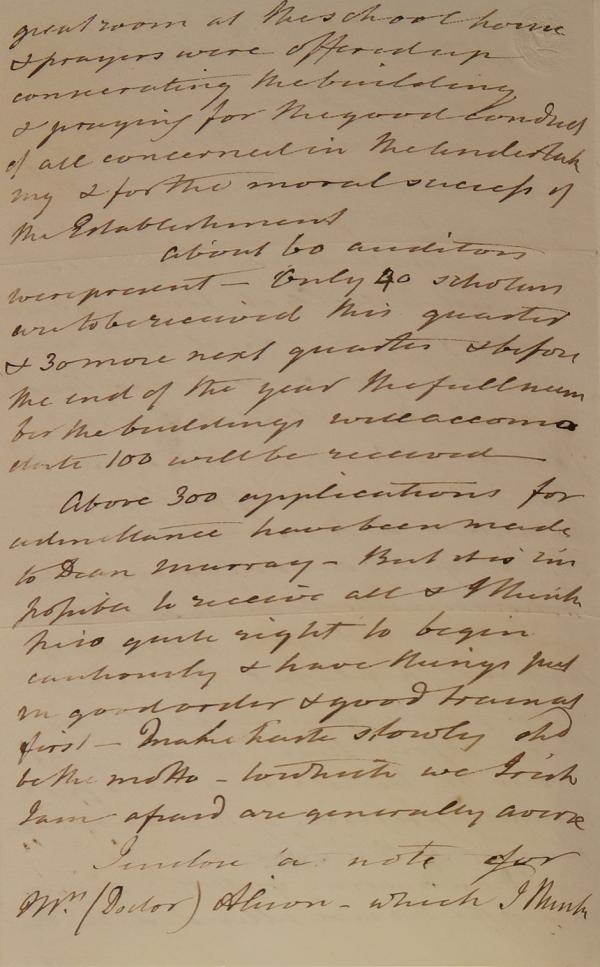 great room at the school house
& prayers were offered up
consecrating the building
& praying for the good conduct
of all concerned in the undertak
ing & for the moral success of
the Establishment
About 60 auditors
were present — Only 40 scholars
are to be received this quarter
& 30 more next quarter & before
the end of the year the full num
ber the buildings will accomo
date 100 will be received —
Above 300 applications for
admittance have been made
to Dean Murray — But it is im
possible to receive all & I think
he is quite right to begin
cautiously & have things put
in good order & good training
first — Make haste slowly shd
be the motto — to which we Irish
I am afraid are generally averse
I enclose a note for
Mrs. (Doctor) Alison — which I think